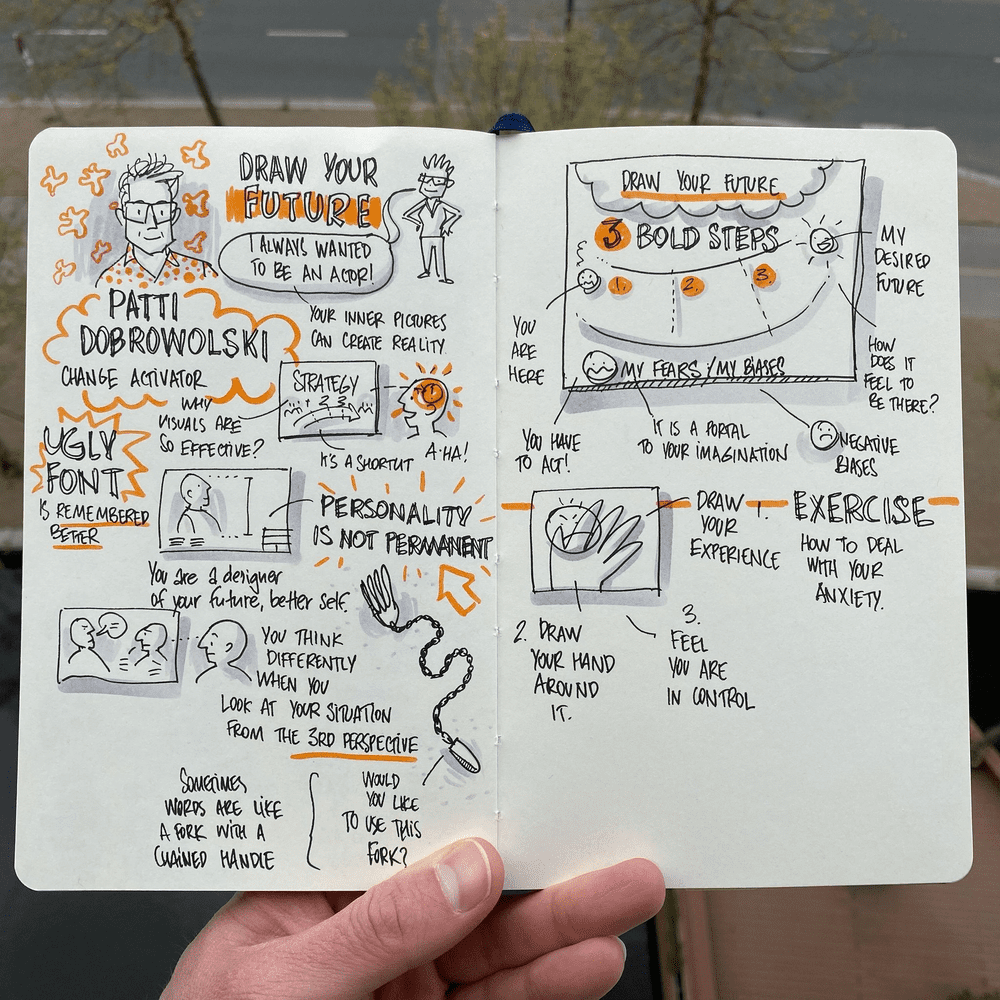 DRAW YOUR
FUTURE
I ALWAYS WANTED
TO BE AN ACTOR!
PATTI
DOBROWOLSKI
CHANGE ACTIVATOR
YOUR INNER PICTURES
CAN CREATE REALITY
WHY
VISUALS ARE
SO EFFECTIVE?
STRATEGY
1 2 3
IT'S A SHORTCUT
A-HA!
UGLY
FONT
IS REMEMBERED
BETTER
PERSONALITY
IS NOT PERMANENT
You are a designer
of your future, better self.
YOU THINK
DIFFERENTLY
WHEN YOU
LOOK AT YOUR SITUATION
FROM THE 3RD PERSPECTIVE
SOMETIMES
WORDS ARE LIKE
A FORK WITH A
CHAINED HANDLE
WOULD
YOU LIKE
TO USE THIS
FORK?
DRAW YOUR FUTURE
3 BOLD STEPS
1. 2. 3.
MY FEARS / MY BIASES
YOU
ARE
HERE
MY
DESIRED
FUTURE
HOW
DOES IT
FEEL TO
BE THERE?
YOU HAVE
TO ACT!
IT IS A PORTAL
TO YOUR IMAGINATION
NEGATIVE
BIASES
EXERCISE
HOW TO DEAL
WITH YOUR
ANXIETY.
1.
DRAW
YOUR
EXPERIENCE
2. DRAW
YOUR HAND
AROUND
IT.
3.
FEEL
YOU ARE
IN CONTROL